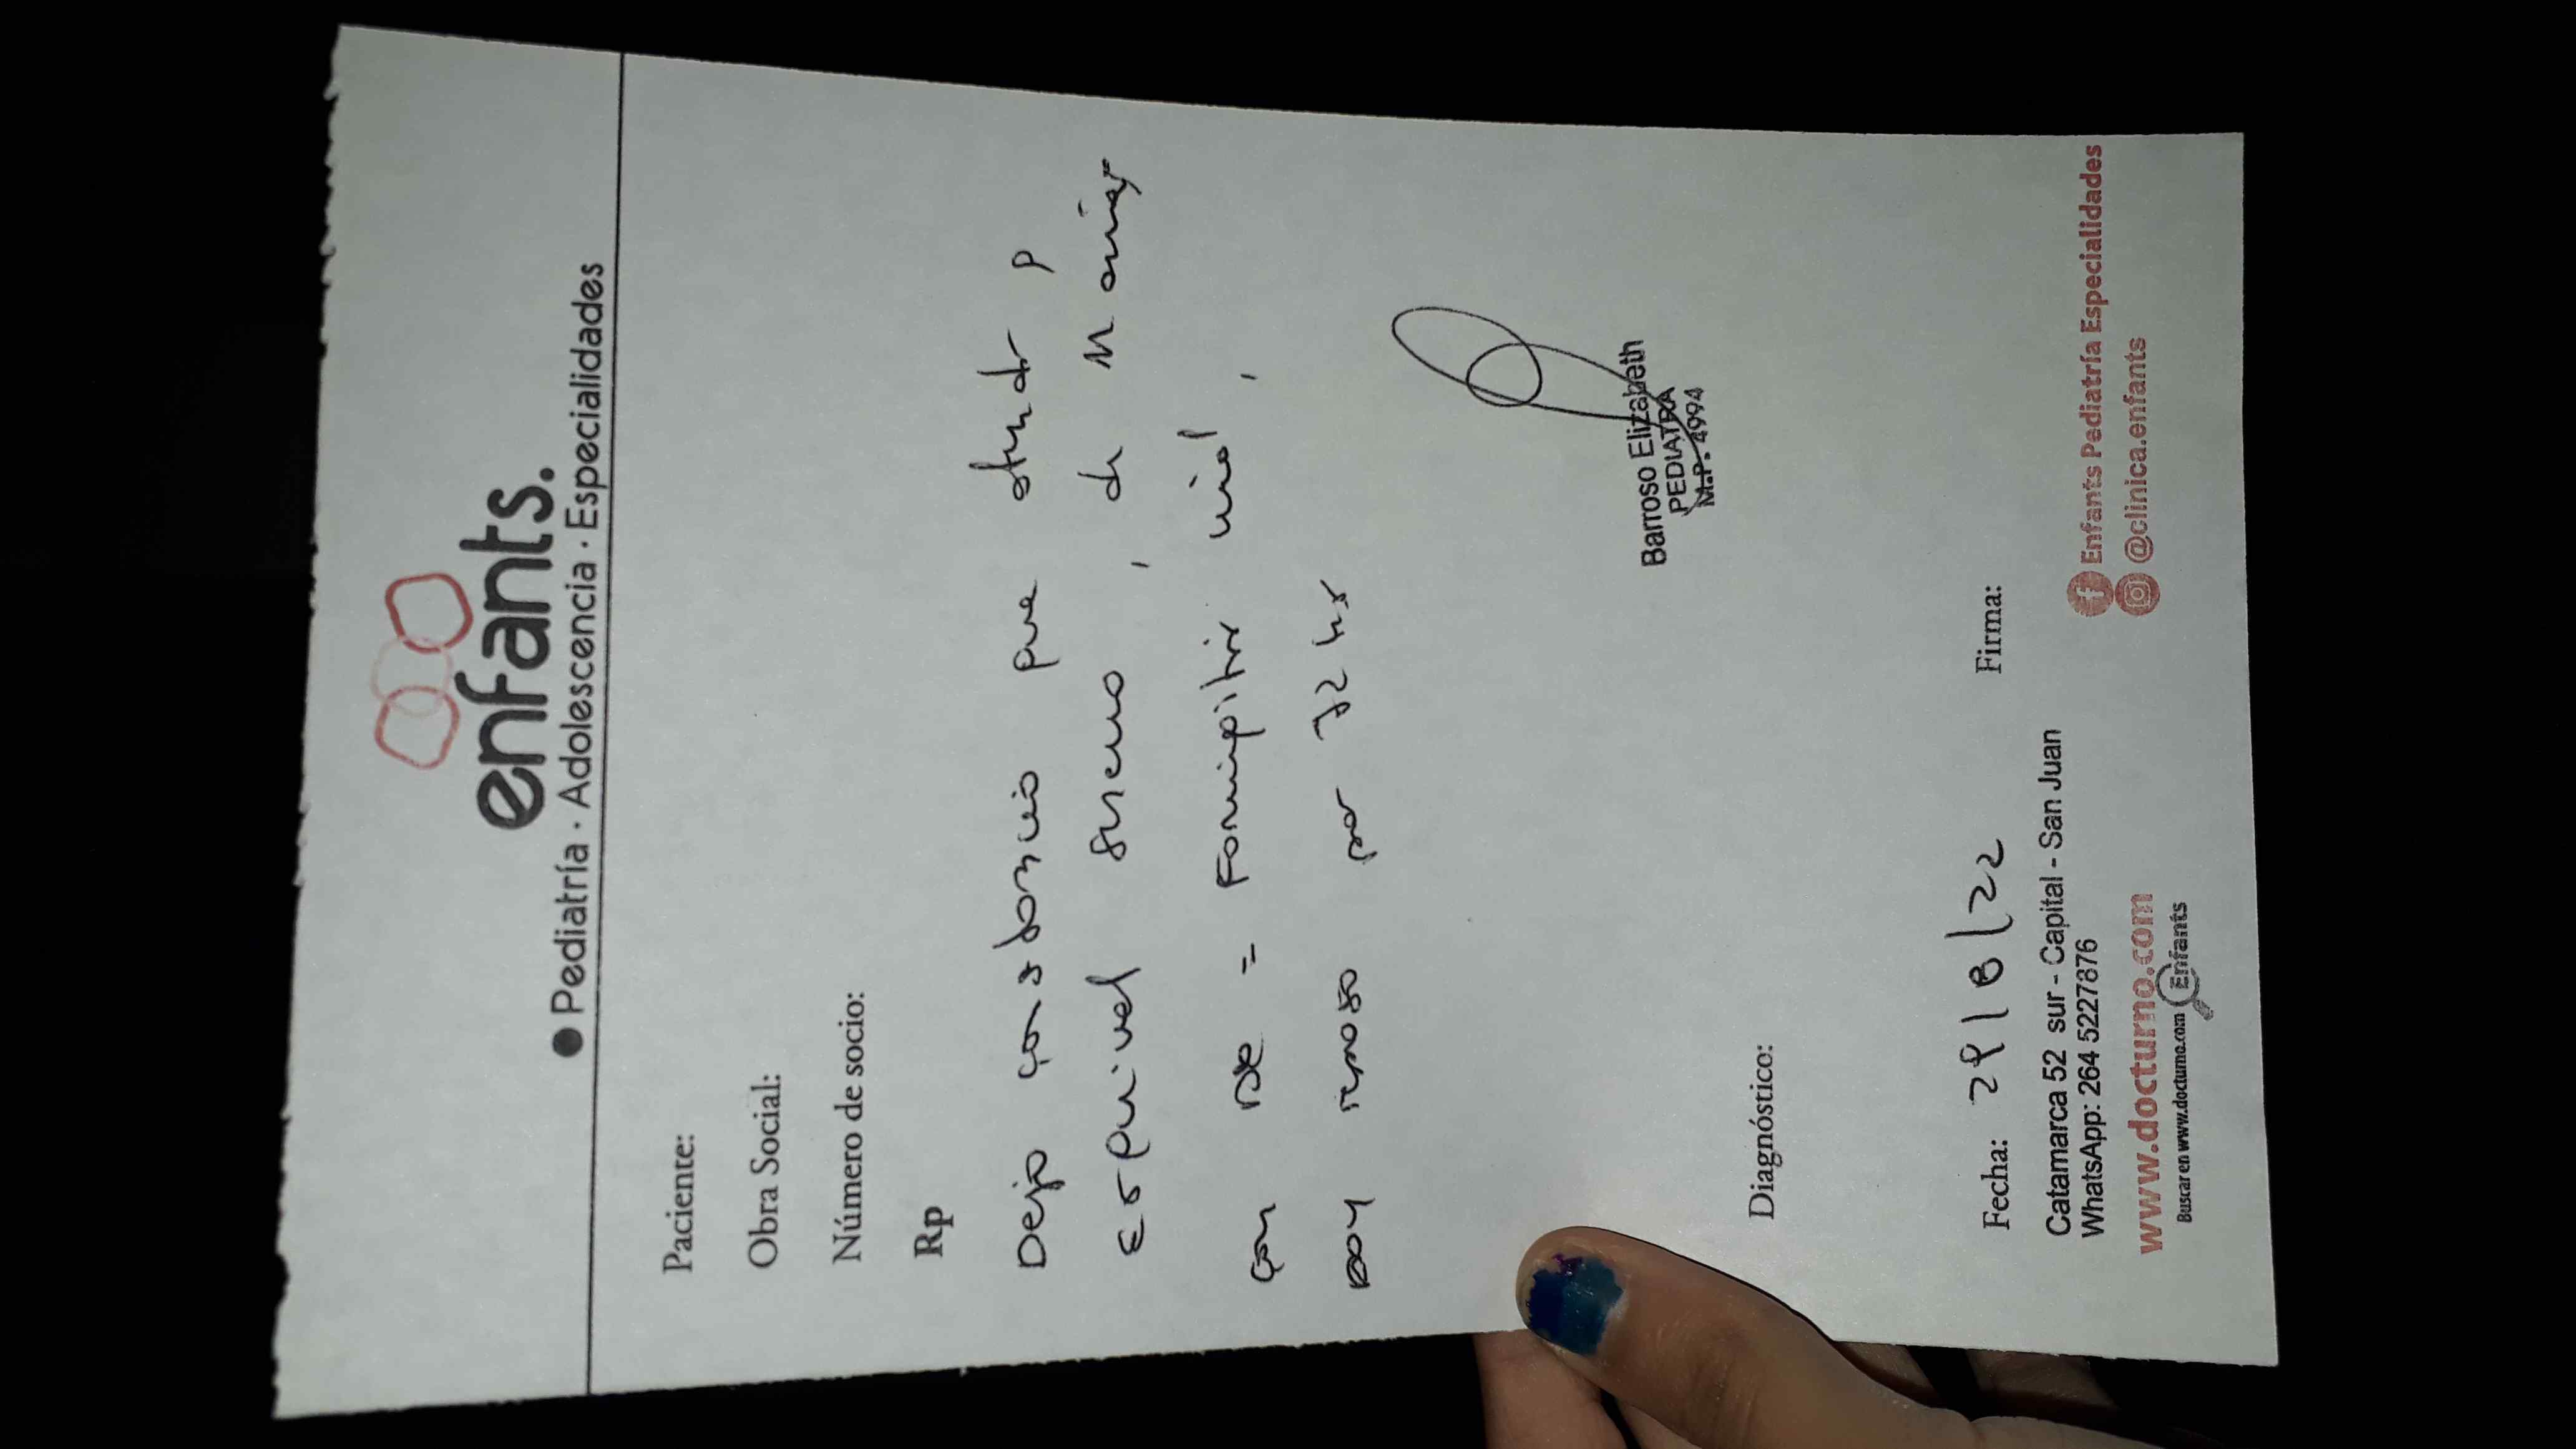 enfants.
Pediatría · Adolescencia · Especialidades
Paciente:
Obra Social:
Número de socio:
Rp
Dejo constancia que atendí a
Esquivel de 11 años
con DX = Faringitis viral,
por 72 hs
Barroso Elizabeth
PEDIATRA
M.P. 4994
Diagnóstico:
Fecha: 29/8/22 Firma:
Catamarca 52 sur - Capital - San Juan
WhatsApp: 264 5227876
www.docturno.com
Buscar en www.docturno.com Enfants
Enfants Pediatría Especialidades
@clinica.enfants